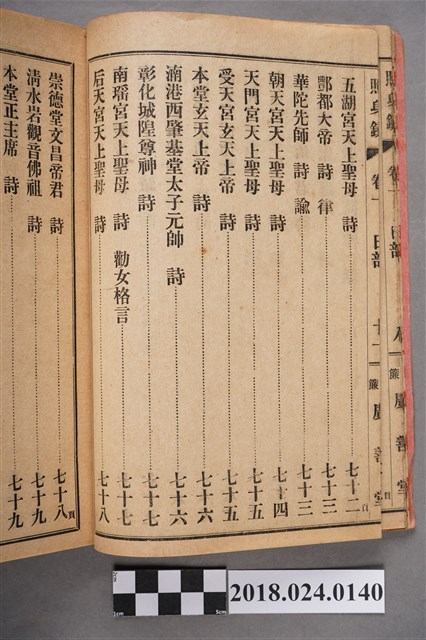 五湖宮天上聖母 詩 七十二頁
酆都大帝 詩 律 七十三
華陀先師 詩 諭 七十三
朝天宮天上聖母 詩 七十四
天門宮天上聖母 詩 七十五
受天宮玄天上帝 詩 七十五
本堂玄天上帝 詩 七十六
湳港西肇基堂太子元帥 詩 七十六
彰化城隍尊神 詩 七十七
南瑤宮天上聖母 詩 勸女格言 七十七
后天宮天上聖母 詩 七十八
崇德堂文昌帝君 詩 七十八頁
清水岩觀音佛祖 詩 七十九
本堂正主席 詩 七十九
卷一 日部
十一
卷一 日部
2018.024.0140